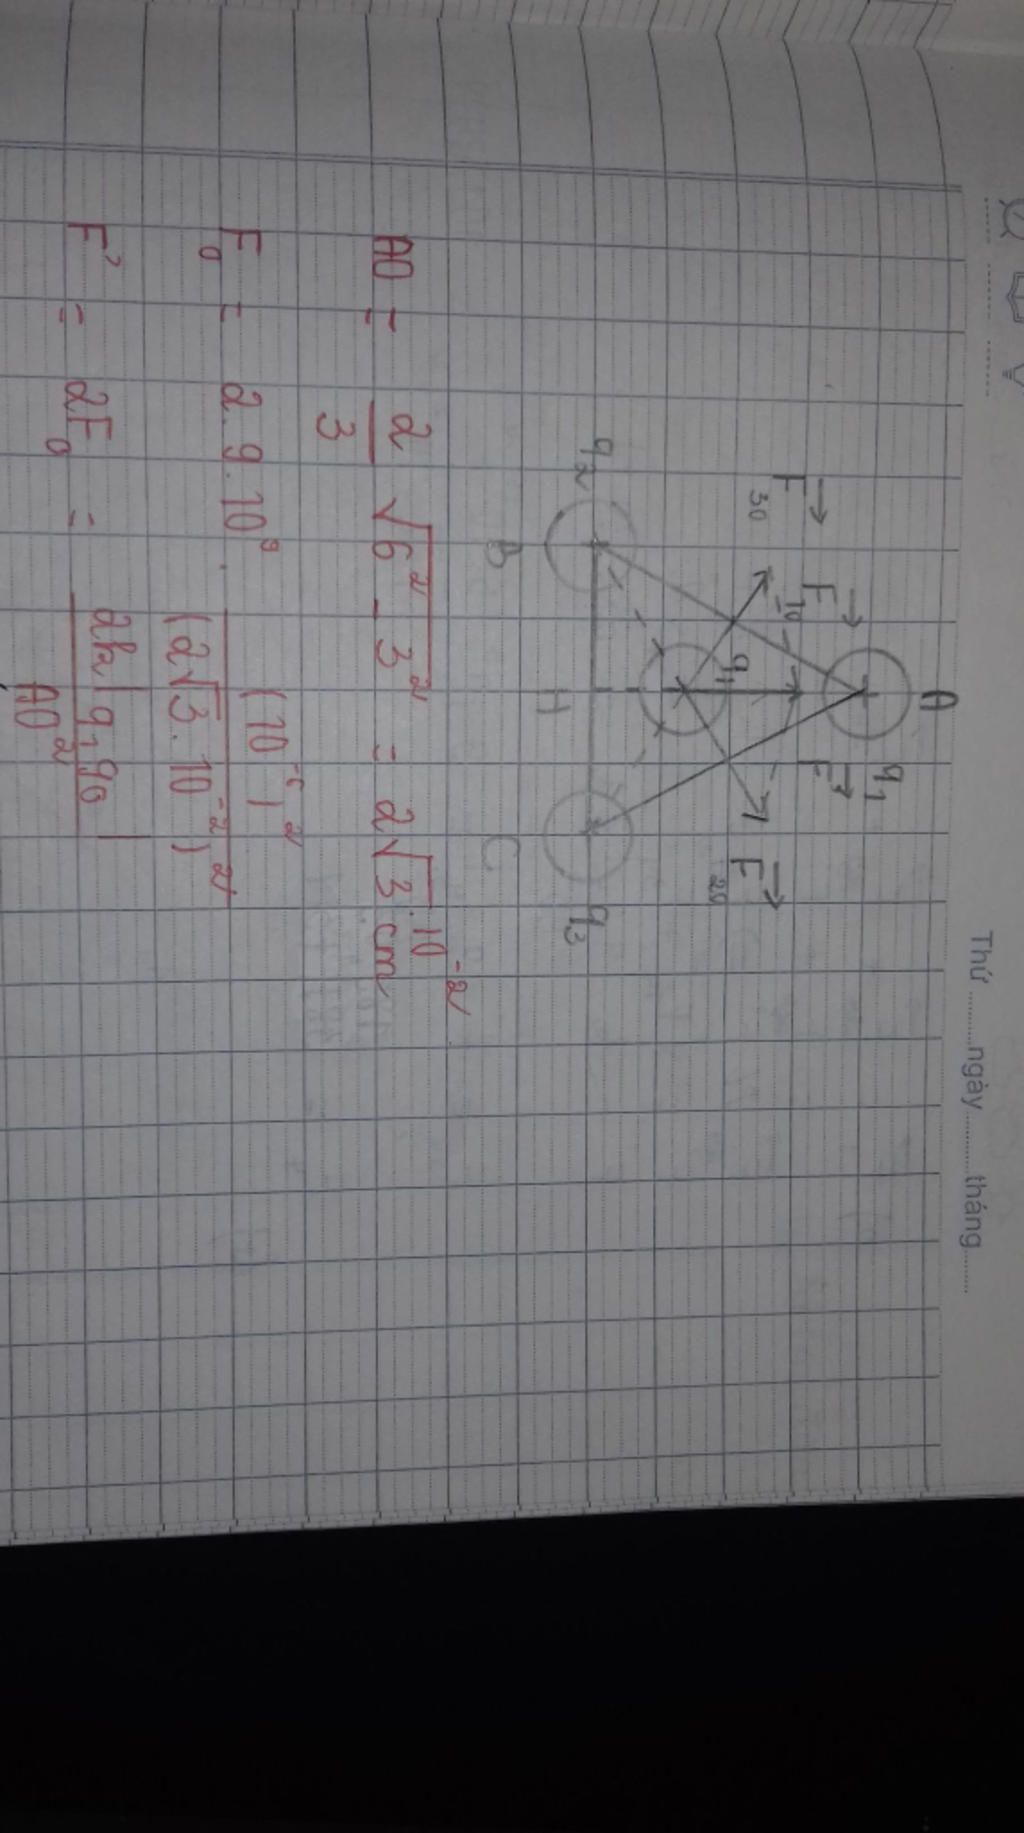 Thứ ........ngày.........tháng......
A
q₁
F₁₀
F
F₃₀
F₂₀
q₁
q₂
q₃
B
H
C
AO = 2/3 √6² - 3² = 2√3 .10⁻² cm
F₀ = 2.9.10⁹ . (10⁻⁶)² / (2√3.10⁻²)²
F' = 2F₀ = 2k|q₁q₀| / AO²